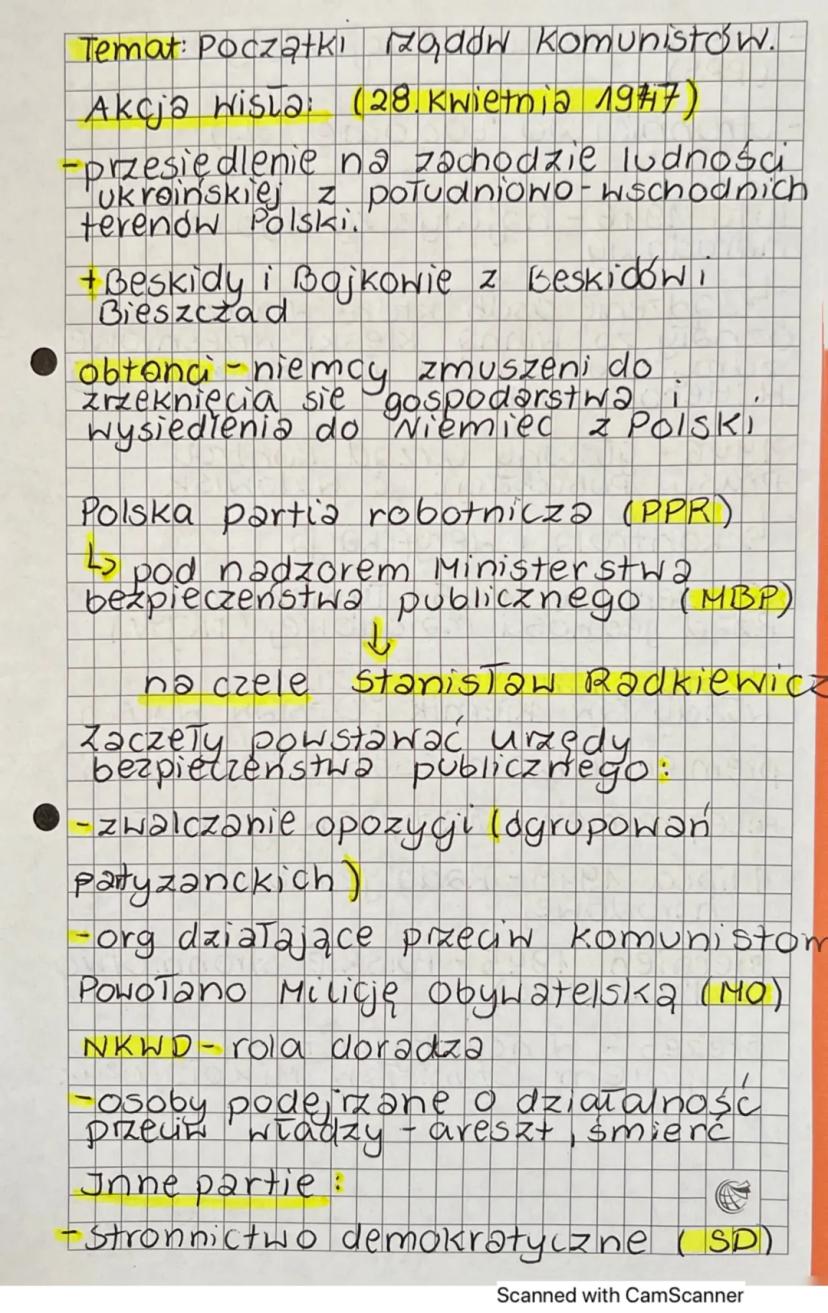 Temat: Początki rządów komunistów.
Akcja Wisła: (28. kwietnia 1947)
- przesiedlenie na zachodzie ludności
ukraińskiej z południowo-wschodnich
terenów Polski.
+ Beskidy i Bojkowie z Beskidów i
Bieszczad
obłonci - niemcy zmuszeni do
zrzeknięcia się gospodarstwa i
wysiedlenia do Niemiec z Polski
Polska partia robotnicza (PPR)
↳ pod nadzorem Ministerstwa
bezpieczeństwa publicznego (MBP)
↓
na czele Stanisław Radkiewicz
Zaczęły powstawać urzędy
bezpieczeństwa publicznego:
- zwalczanie opozygi (dgrupowań
patyzanckich)
- org działające przeciw komunistom
Powołano Milicję Obywatelską (MO)
NKWD - rola doradza
- osoby podejrzane o działalność
przeciw władzy - areszt, śmierć
Inne partie:
- stronnictwo demokratyczne (SD)
Scanned with CamScanner